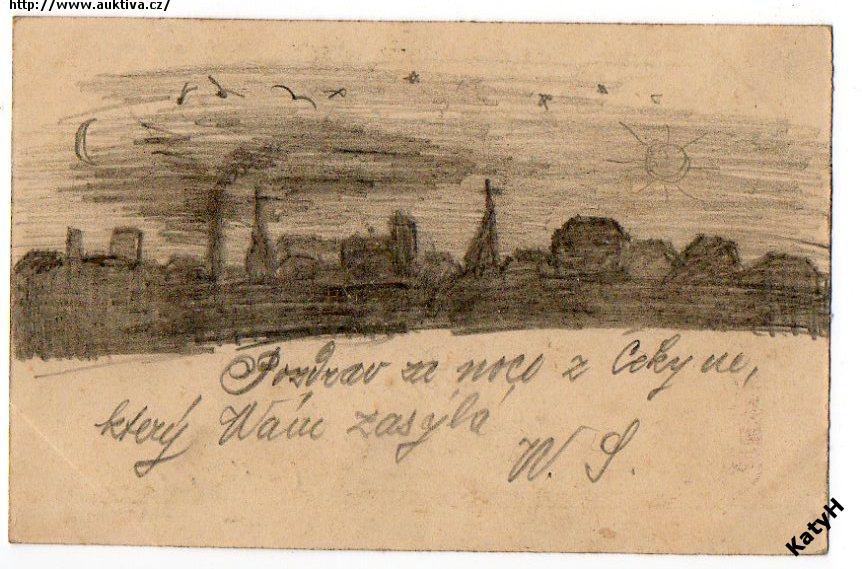 http://www.auktiva.cz/
Pozdrav za noci z Cekyne,
který Wám zasýlá
W. S.
KatyH